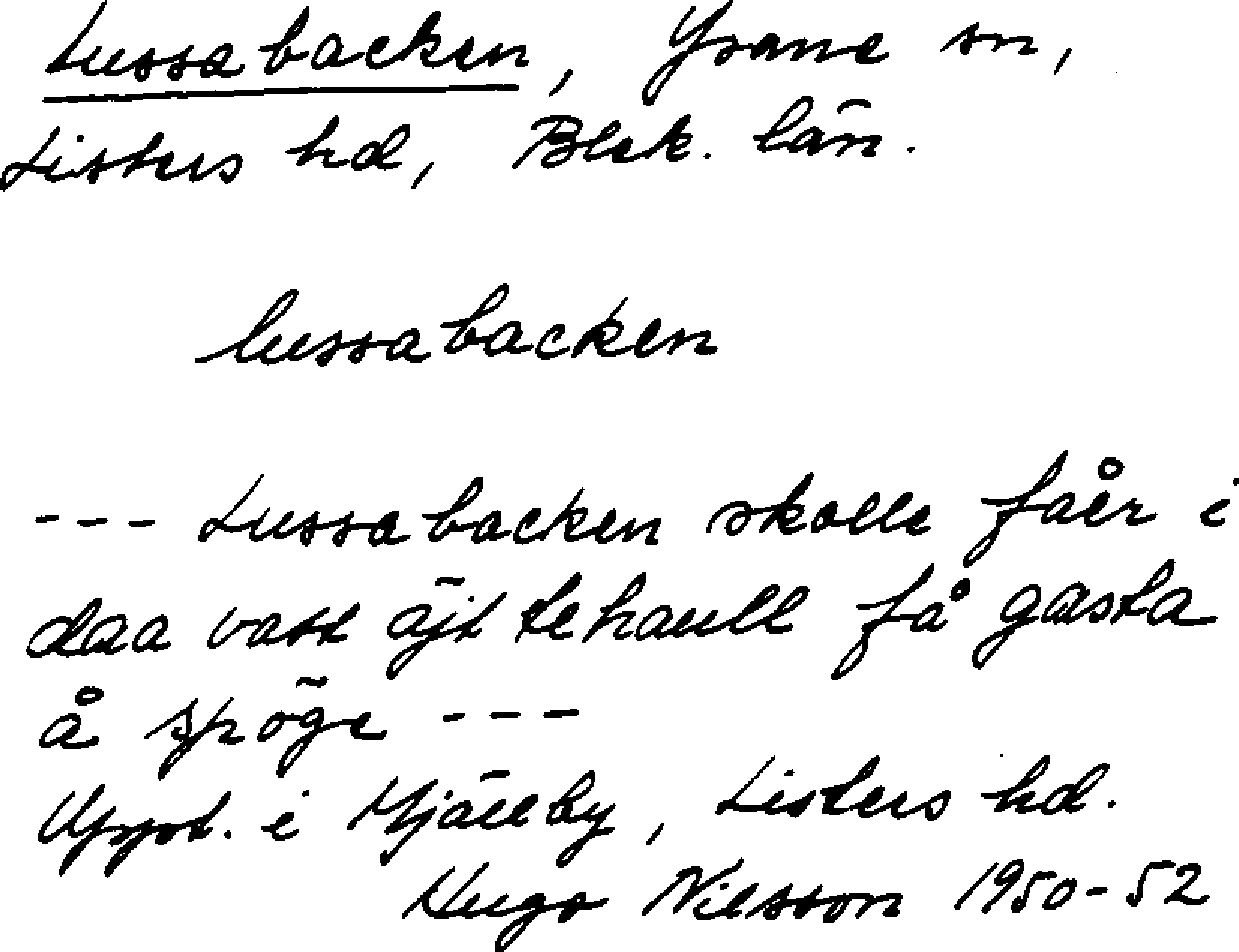 Lussabacken, Ysane sn,
Listers hd, Blek. län.
lussabacken
--- Lussabacken skolle fåer i
daa vatt äjt tehaull få gasta
å spöge ---
Uppt. i Mjällby, Listers hd.
Hugo Nilsson 1950-52